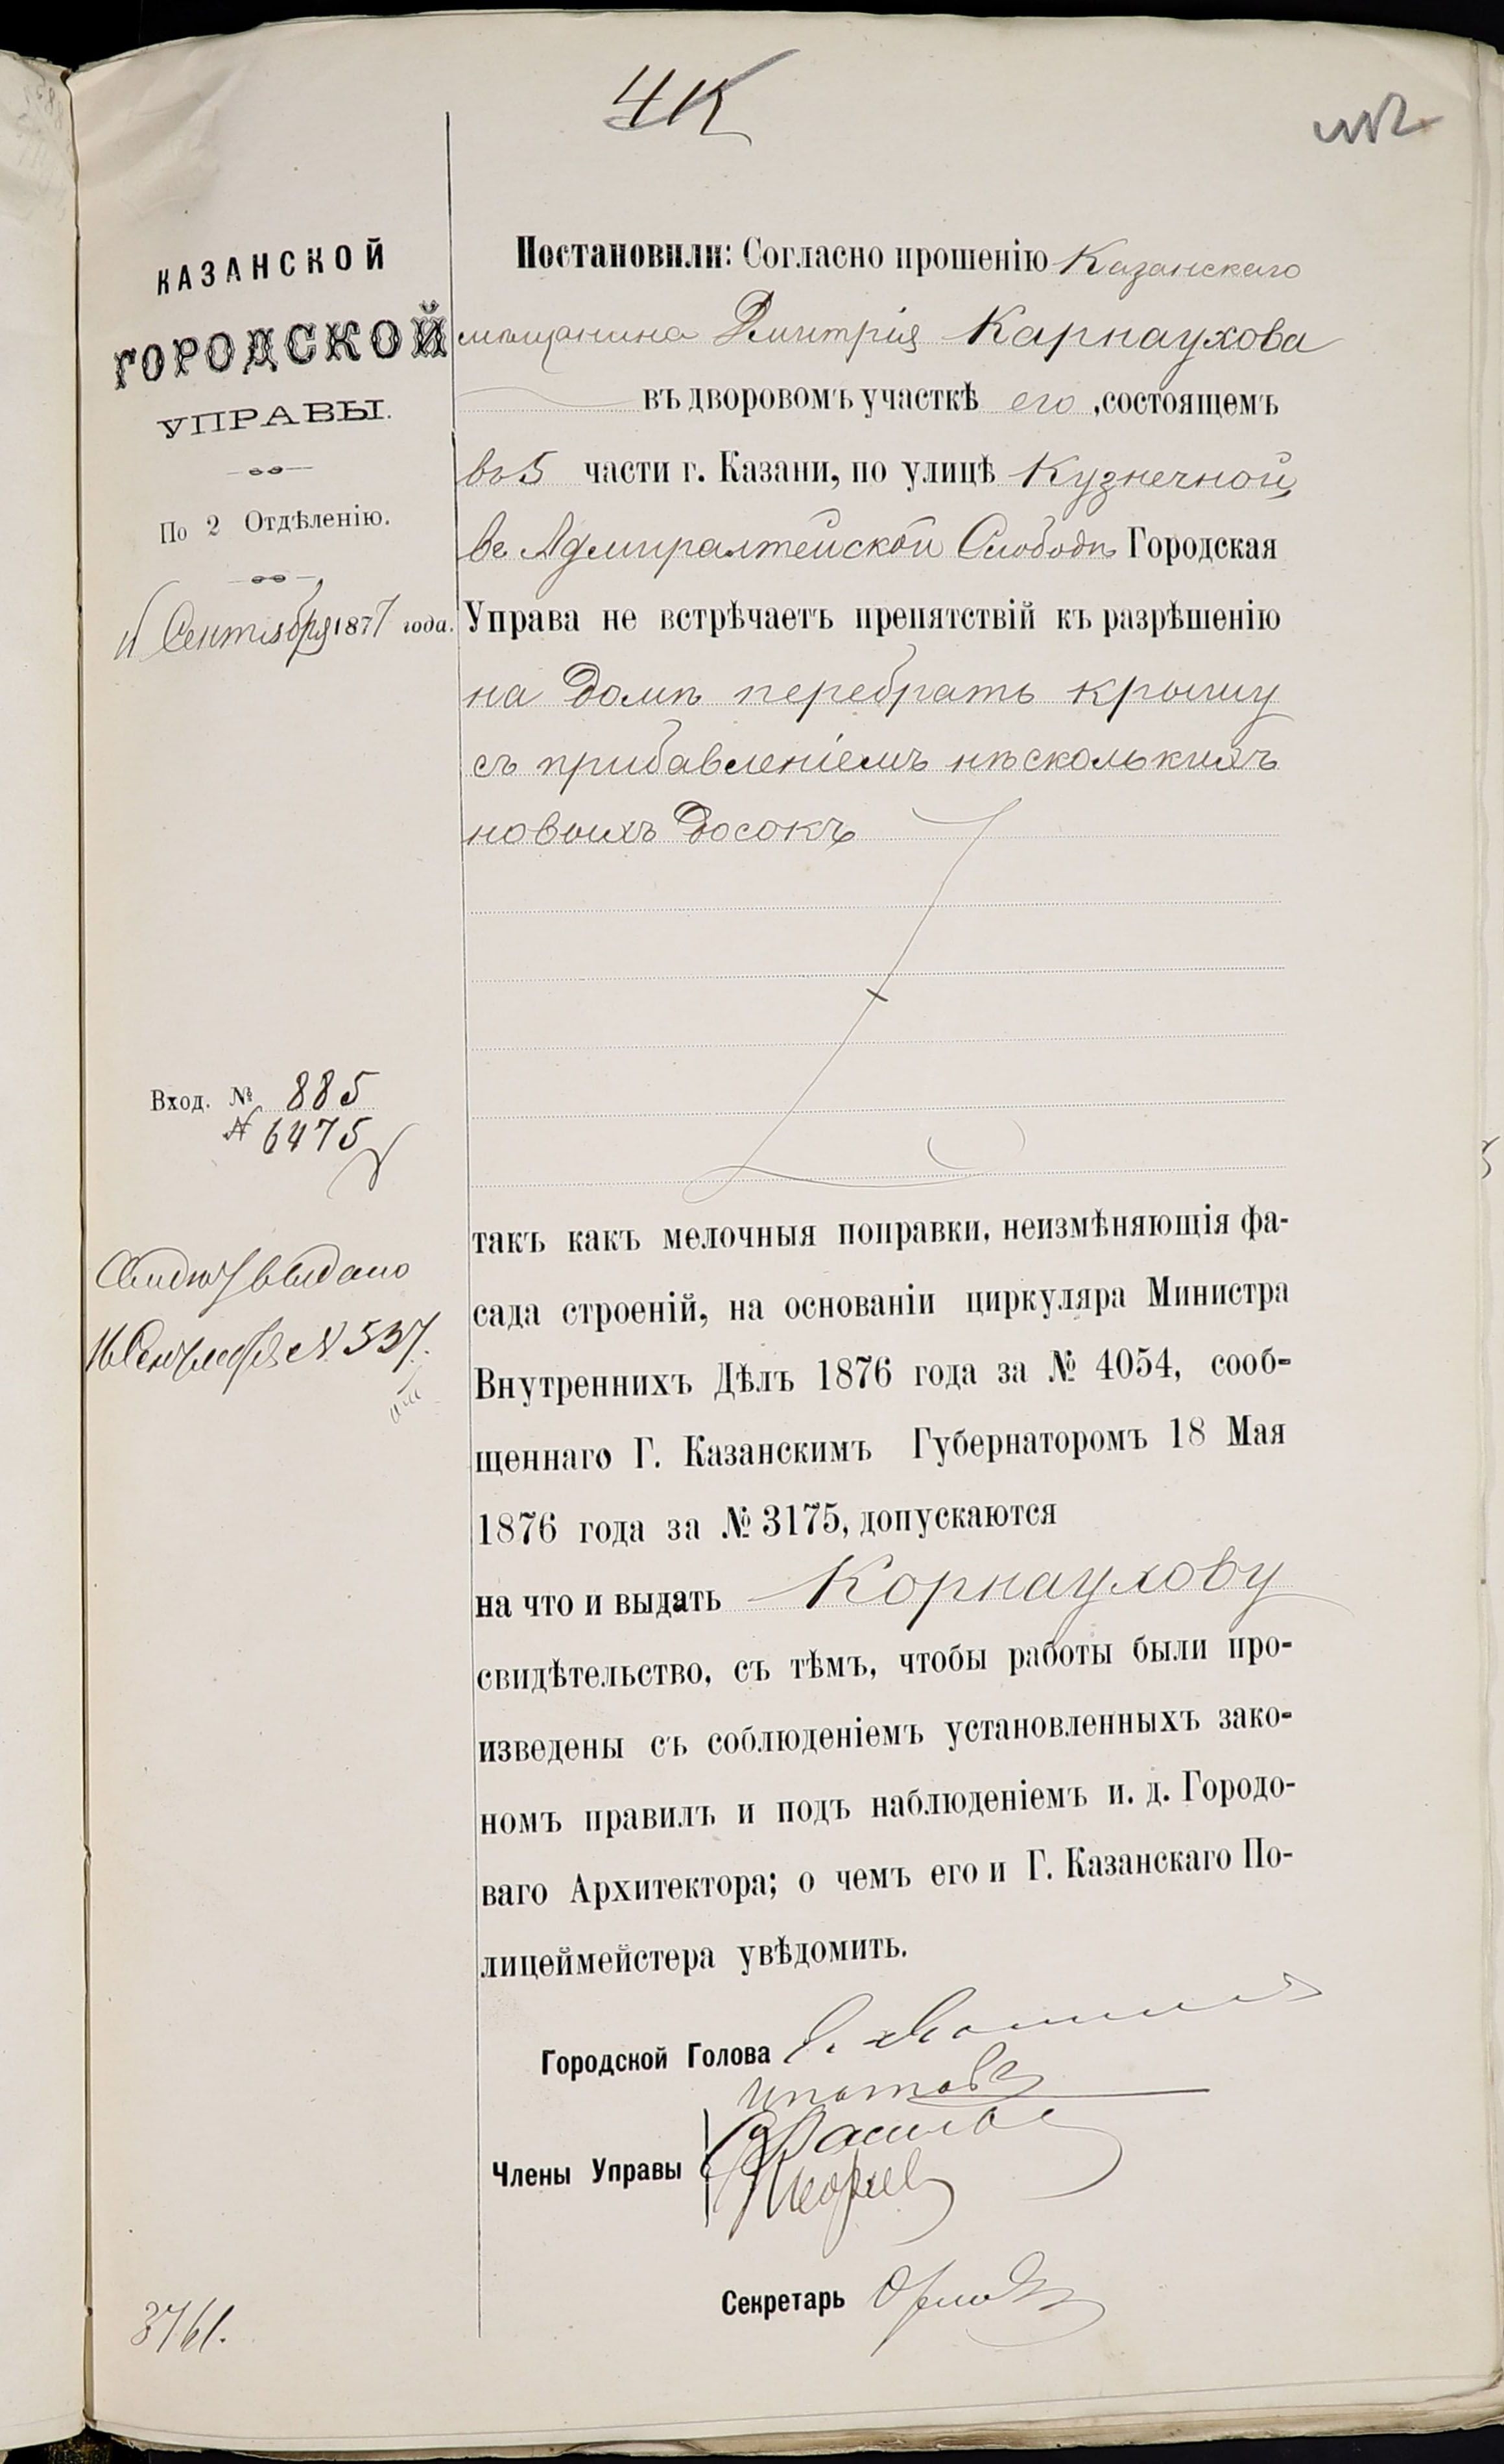 4К
КАЗАНСКОЙ
ГОРОДСКОЙ
УПРАВЫ.
По 2 Отдѣленію.
Сентября 1877 года.
Вход. № 885
№ 6475
выдано
16 Сентября № 537.
3761.
Постановили: Согласно прошенію Казанскаго
мѣщанина Дмитрія Карнаухова
въ дворовомъ участкѣ его, состоящемъ
въ 5 части г. Казани, по улицѣ Кузнечной,
въ Адмиралтейской Слободѣ Городская
Управа не встрѣчаетъ препятствій къ разрѣшенію
на домѣ перебрать крышу
съ прибавленіемъ нѣсколькихъ
новыхъ досокъ
такъ какъ мелочныя поправки, неизмѣняющія фа-
сада строеній, на основаніи циркуляра Министра
Внутреннихъ Дѣлъ 1876 года за № 4054, сооб-
щеннаго Г. Казанскимъ Губернаторомъ 18 Мая
1876 года за № 3175, допускаются
на что и выдать Корнаухову
свидѣтельство, съ тѣмъ, чтобы работы были про-
изведены съ соблюденіемъ установленныхъ зако-
номъ правилъ и подъ наблюденіемъ и. д. Городо-
ваго Архитектора; о чемъ его и Г. Казанскаго По-
лицеймейстера увѣдомить.
Городской Голова
Члены Управы
Секретарь